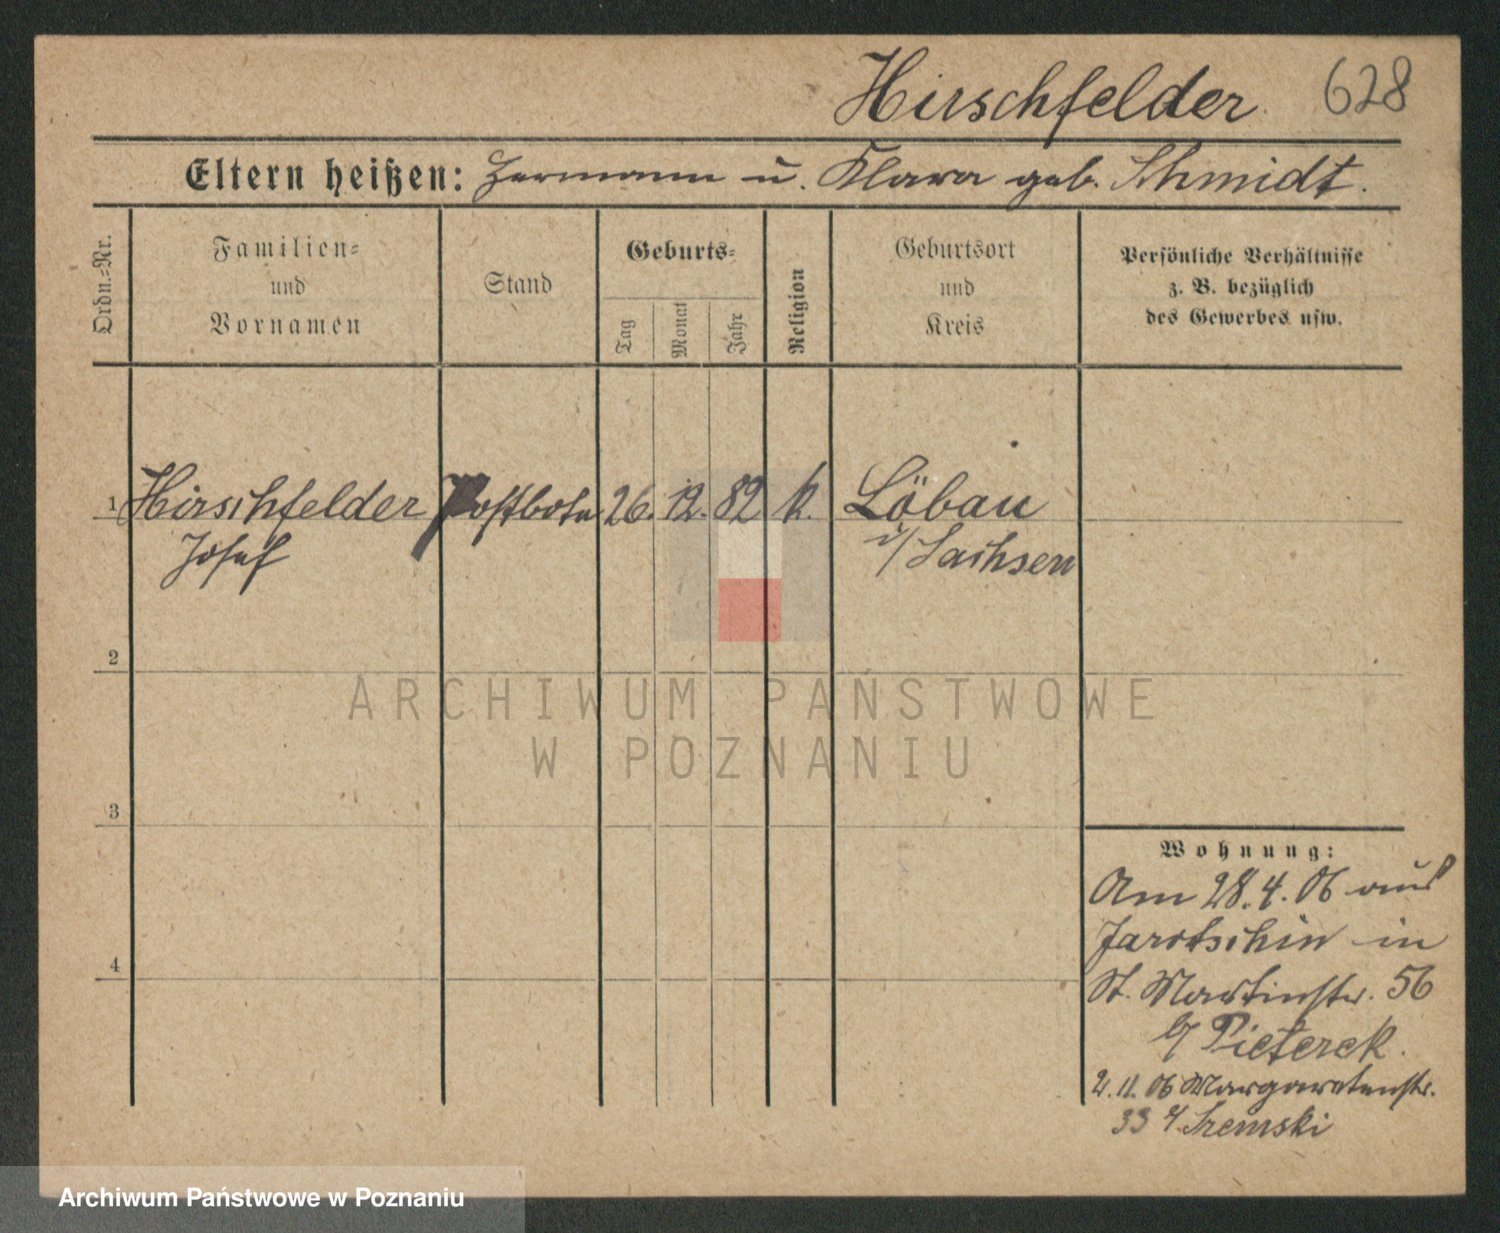 Hirschfelder 628
Eltern heißen: Hermann u. Klara geb. Schmidt.
Ordn.=Nr.
Familien=
und
Vornamen
Stand
Geburts=
Tag
Monat
Jahr
Religion
Geburtsort
und
Kreis
Persönliche Verhältnisse
z. B. bezüglich
des Gewerbes usw.
1 Hirschfelder Postbote 26. 12. 82 k. Löbau
Josef i/Sachsen
2
3
4
ARCHIWUM PAŃSTWOWE
W POZNANIU
Wohnung:
Am 28.4.06 aus
Jarotschin in
St. Martinstr. 56
b/ Pieterek.
2.11.06 Margaretenstr.
33 Sremski
Archiwum Państwowe w Poznaniu